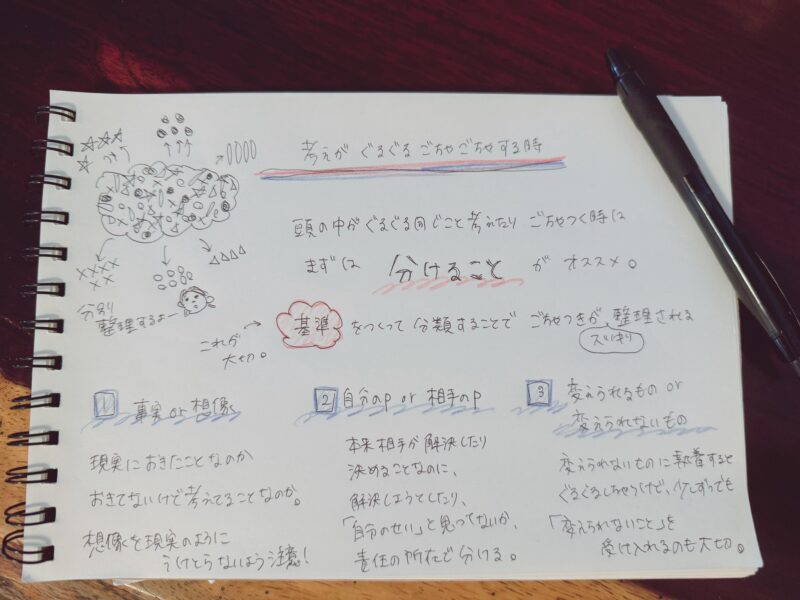 考えが ぐるぐる ごちゃごちゃする時
頭の中が ぐるぐる 同じこと 考えたり ごちゃつく時は
まずは 分けること が オススメ。
分別
整理するよー
これが
大切。
基準 をつくって 分類することで ごちゃつきが 整理される
ズバリ
1 事実 or 想像
現実におきたことなのか
おきてないけど考えてることなのか。
想像を現実のように
うけとらないよう注意!
2 自分のP or 相手のP
本来相手が解決したり
決めることなのに、
解決しようとしたり、
「自分のせい」と思ってないか、
責任の所在で分ける。
3 変えられるもの or
変えられないもの
変えられないものに執着すると
ぐるぐるしちゃうけど、少しずつでも
「変えられないこと」を
受け入れるのも大切。